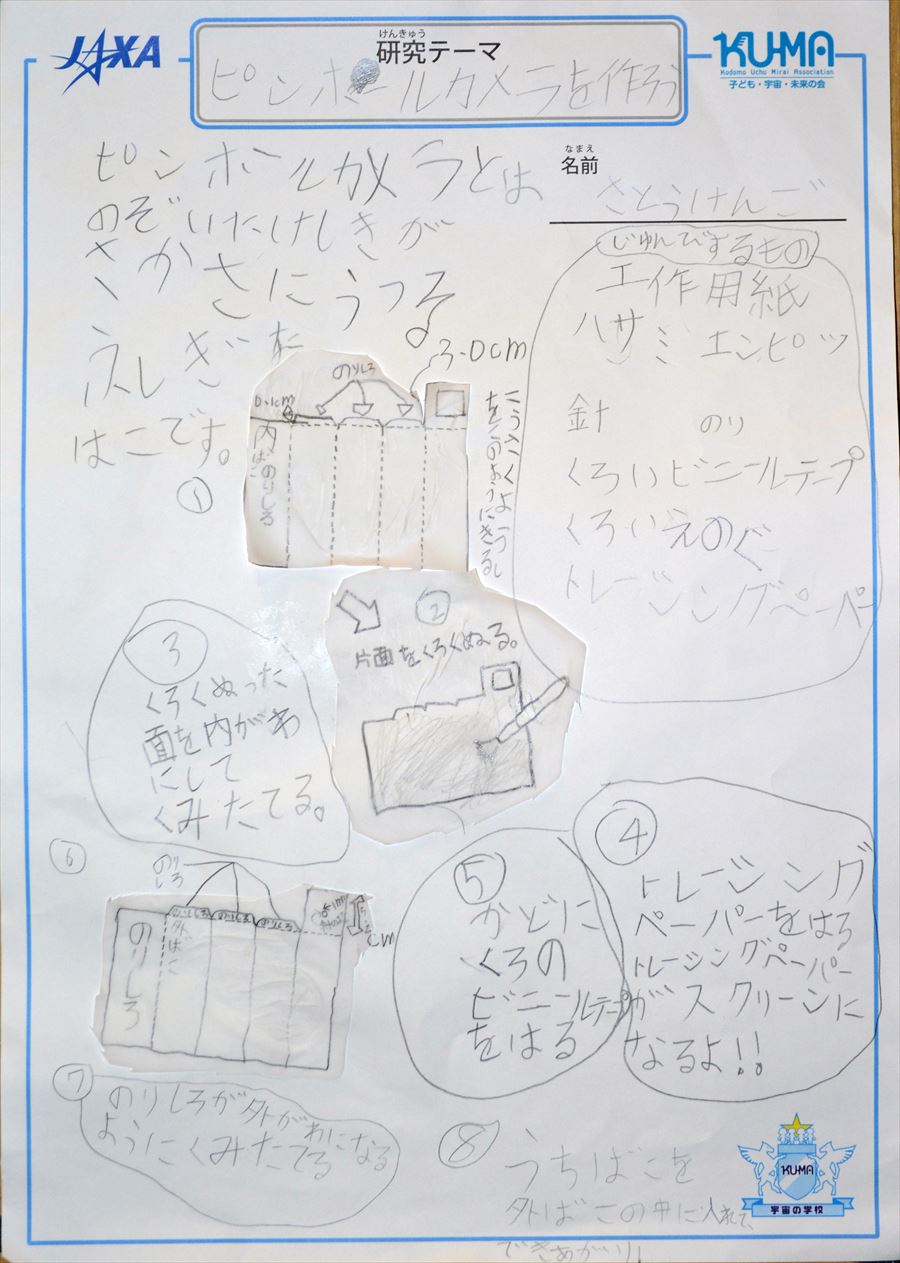 JAXA
けんきゅう
研究テーマ
ピンホールカメラを作ろう
KU-MA
Kodomo Uchu Mirai Association
子ども・宇宙・未来の会
なまえ
名前
さとうけんご
ピンホールカメラとは
のぞいたけしきが
さかさにうつる
ふしぎな
はこです。
じゅんびするもの
工作用紙
ハサミ エンピツ
針 のり
くろいビニールテープ
くろいえのぐ
トレーシングペーパー
①
のりしろ
3.0cm
0.1cm
内ばこ
のりしろ
をこのようにきる
②
片面をくろくぬる。
③
くろくぬった
面を内がわ
にして
くみたてる。
④
トレーシング
ペーパーをはる
トレーシングペーパー
がスクリーンに
なるよ!!
⑤
かどに
くろの
ビニールテープ
をはる
⑥
のりしろ
のりしろ のりしろ のりしろ
外ばこ
のりしろ
cm
⑦
のりしろが外がわになる
ようにくみたてる
⑧
うちばこを
外ばこの中に入れて、
できあがり!
KU-MA
宇宙の学校